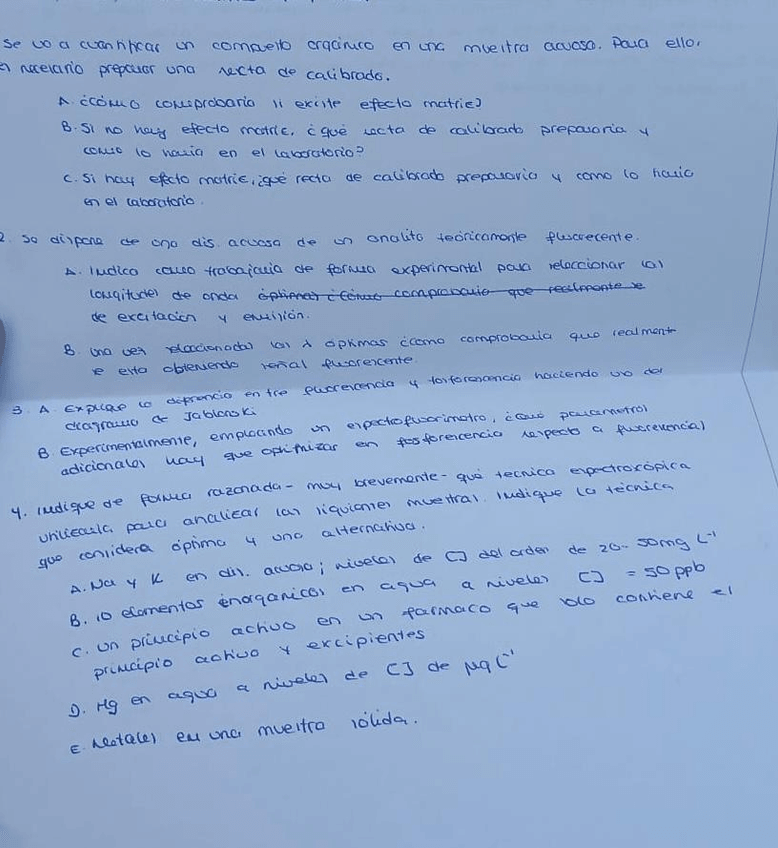 Se va a cuantificar un compuesto orgánico en una muestra acuosa. Para ello,
necesario preparar una recta de calibrado.
A. ¿cómo comprobaría si existe efecto matriz?
B. Si no hay efecto matriz, ¿qué recta de calibrado prepararía y
como lo haría en el laboratorio?
C. Si hay efecto matriz, ¿qué recta de calibrado prepararía y como lo haría
en el laboratorio.
2. Se dispone de una dis. acuosa de un analito teóricamente fluorecente.
A. Indica como trabajaría de forma experimental para seleccionar las
longitudes de onda óptimas ¿cómo comprobaría que realmente se
de excitación y emisión.
B. Una vez seleccionadas las λ óptimas ¿como comprobaría que realmente
se esta obteniendo señal fluorescente.
3. A. Explique la diferencia entre fluorescencia y fosforescencia haciendo uso del
diagrama de Jablonski
B. Experimentalmente, empleando un espectrofluorimetro, ¿qué parametros
adicionales hay que optimizar en fosforescencia respecto a fluorescencia?
4. Indique de forma razonada - muy brevemente - qué tecnica espectroscópica
utilizaría para analizar las siguientes muestras. Indique la técnica
que considera óptima y una alternativa.
A. Na y K en dis. acuosa; niveles de [] del orden de 20-50mg L⁻¹
B. 10 elementos inorgánicos en agua a niveles [] = 50 ppb
C. Un principio activo en un farmaco que solo contiene el
principio activo y excipientes
D. Hg en agua a niveles de [] de µg L⁻¹
E. Metales en una muestra sólida.